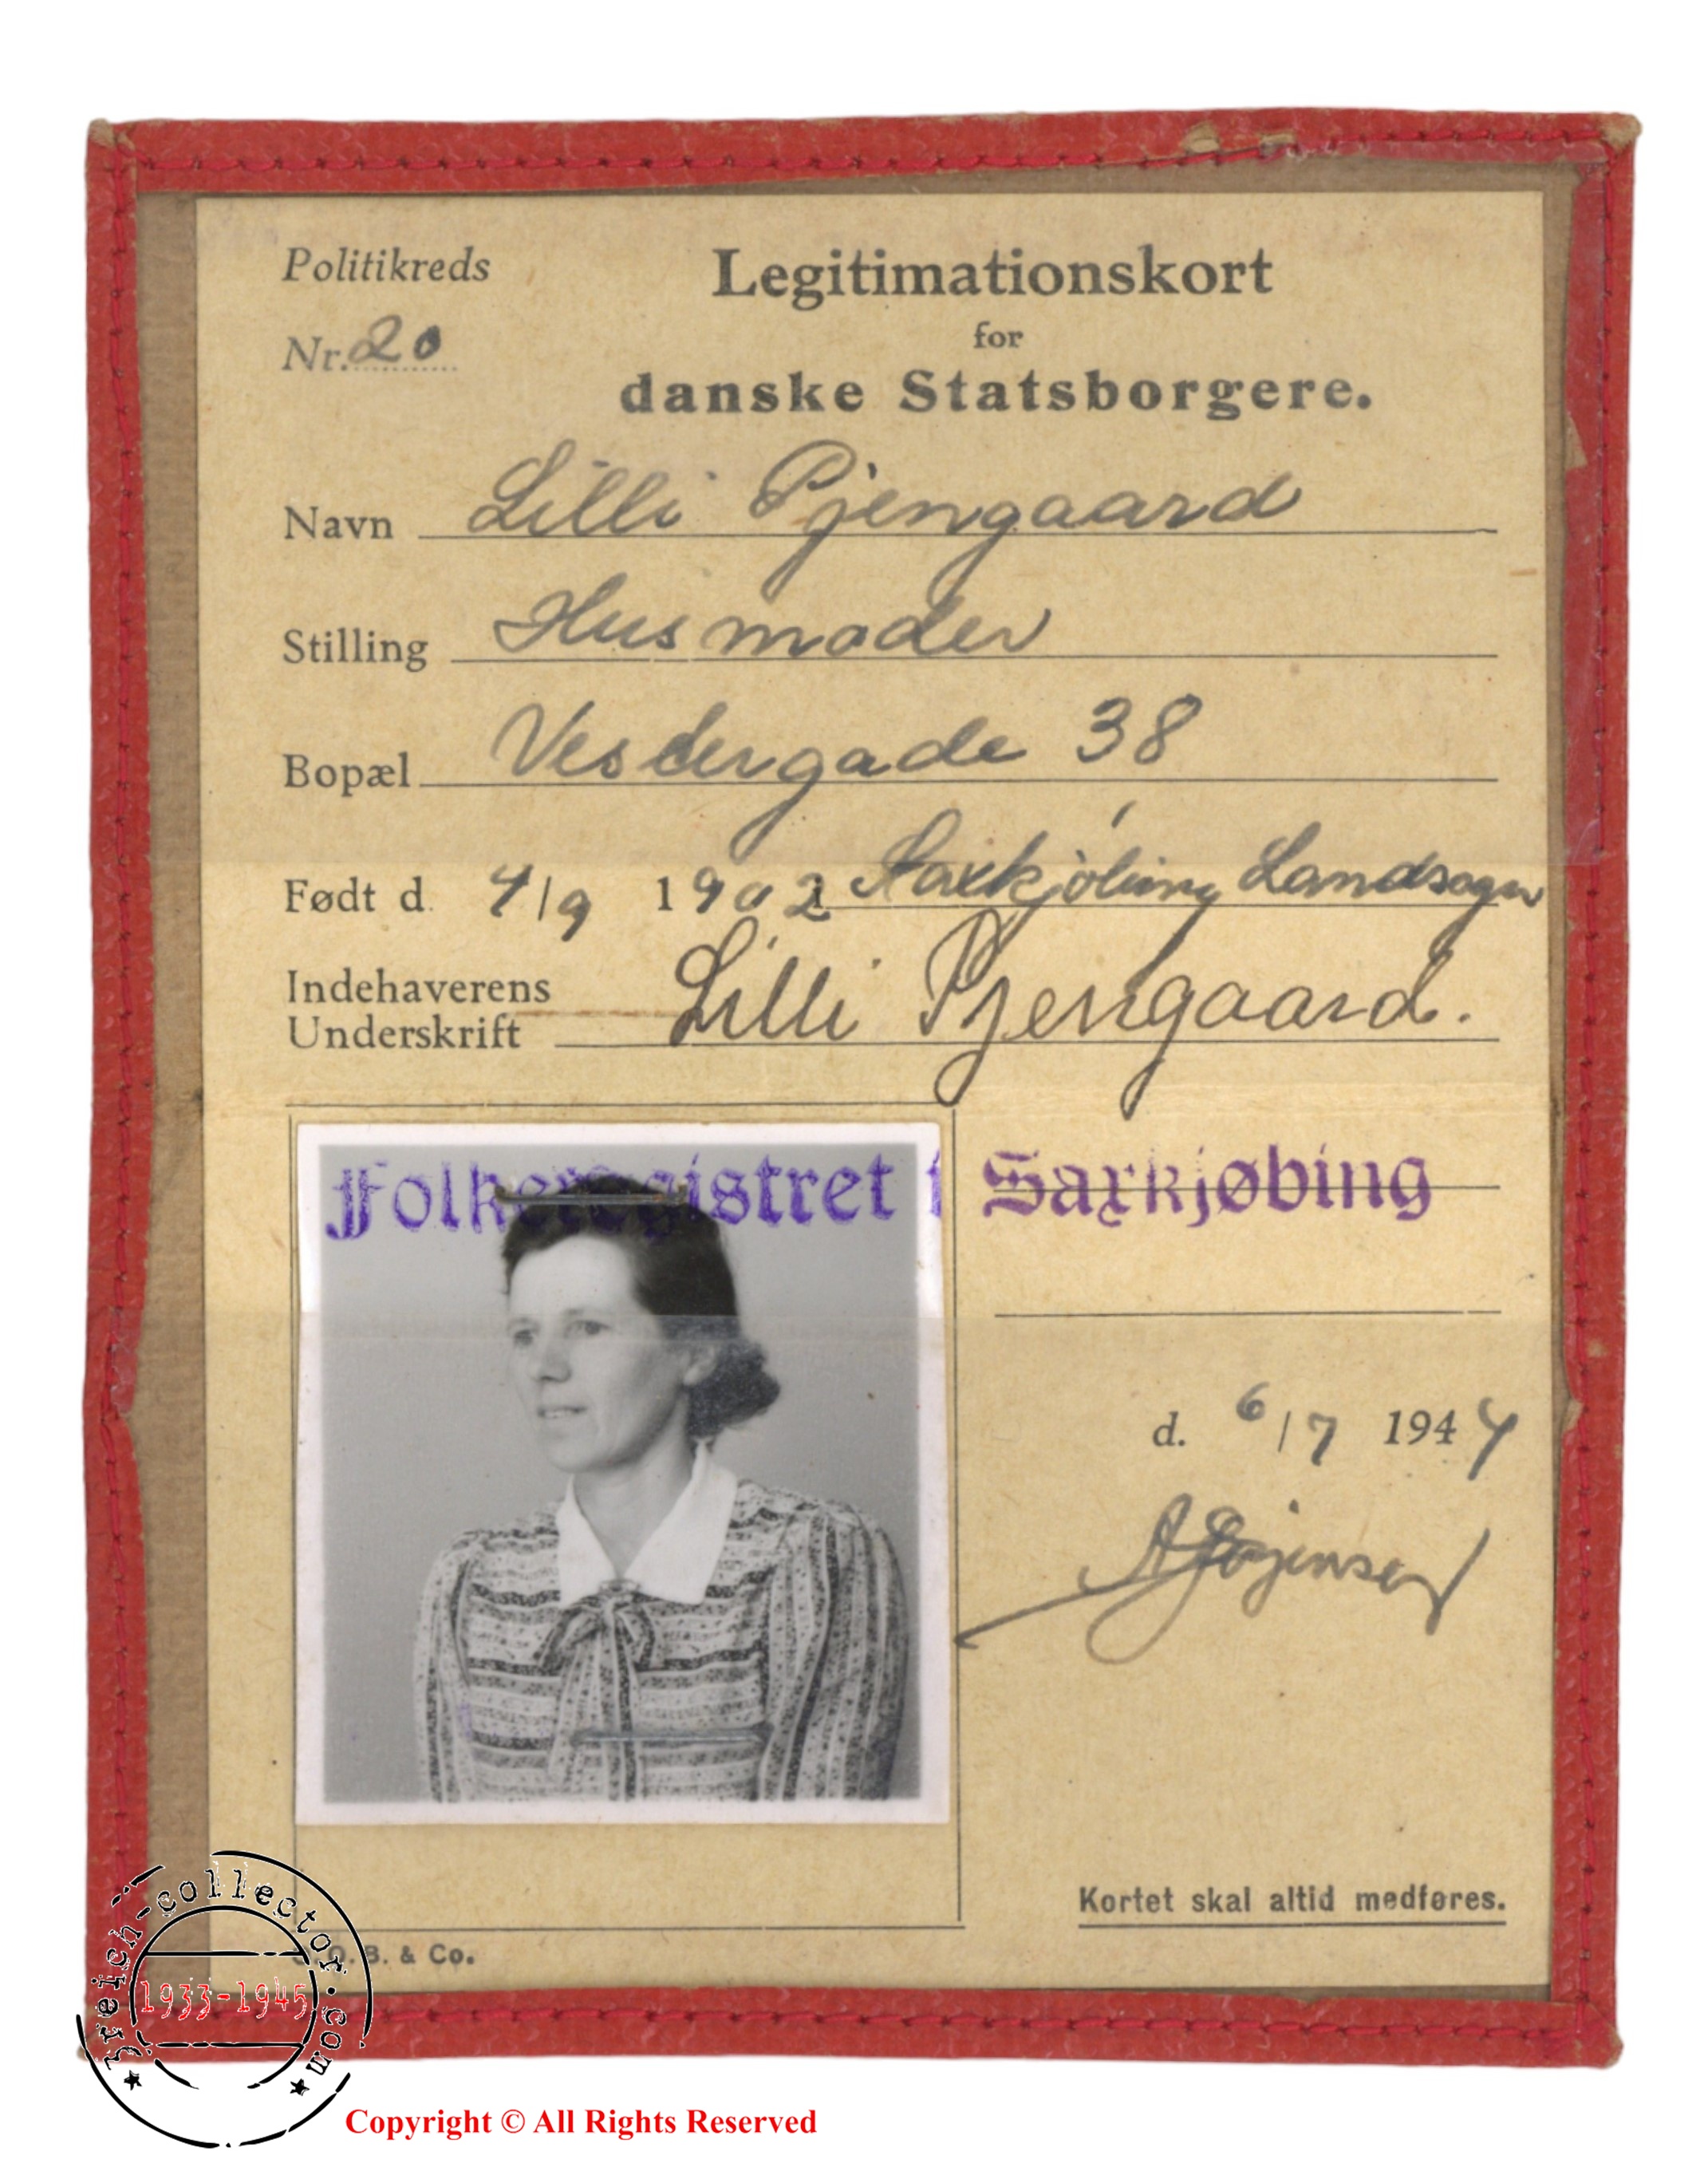 Politikreds
Nr. 20
Legitimationskort
for
danske Statsborgere.
Navn Lilli Pjengaard
Stilling Husmoder
Bopæl Vestergade 38
Født d. 4/9 1902 i Saxkjøbing Landsogn
Indehaverens
Underskrift Lilli Pjengaard.
Folkeregistret i Saxkjøbing
d. 6/7 1944
Kortet skal altid medføres.
B. & Co.
3reich-collector.com
1933-1945
Copyright © All Rights Reserved